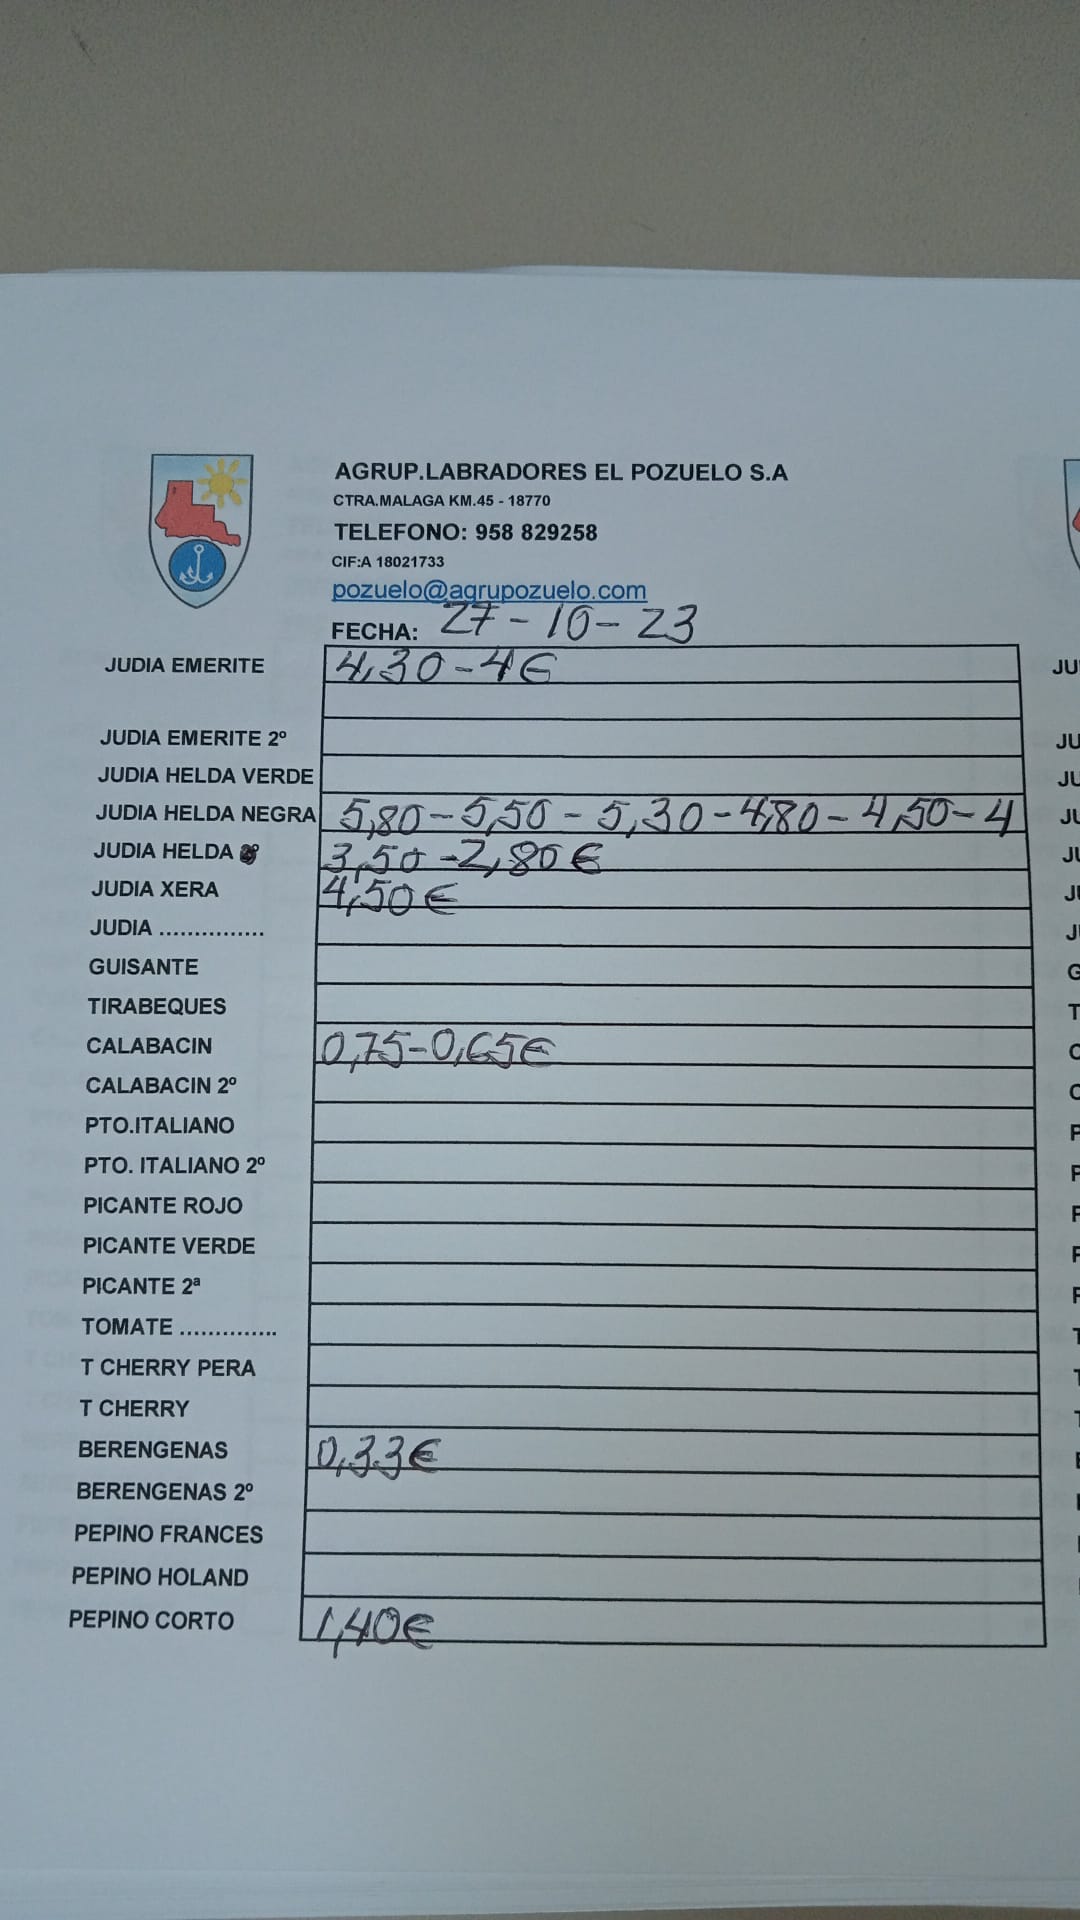 AGRUP.LABRADORES EL POZUELO S.A
CTRA.MALAGA KM.45 - 18770
TELEFONO: 958 829258
CIF:A 18021733
pozuelo@agrupozuelo.com
FECHA: 27-10-23
JUDIA EMERITE 4,30-4€
JUDIA EMERITE 2º
JUDIA HELDA VERDE
JUDIA HELDA NEGRA 5,80-5,50-5,30-4,80-4,50-4
JUDIA HELDA 3,50-2,80€
JUDIA XERA 4,50€
JUDIA ...............
GUISANTE
TIRABEQUES
CALABACIN 0,75-0,65€
CALABACIN 2º
PTO.ITALIANO
PTO. ITALIANO 2º
PICANTE ROJO
PICANTE VERDE
PICANTE 2ª
TOMATE ..............
T CHERRY PERA
T CHERRY
BERENGENAS 0,33€
BERENGENAS 2º
PEPINO FRANCES
PEPINO HOLAND
PEPINO CORTO 1,40€